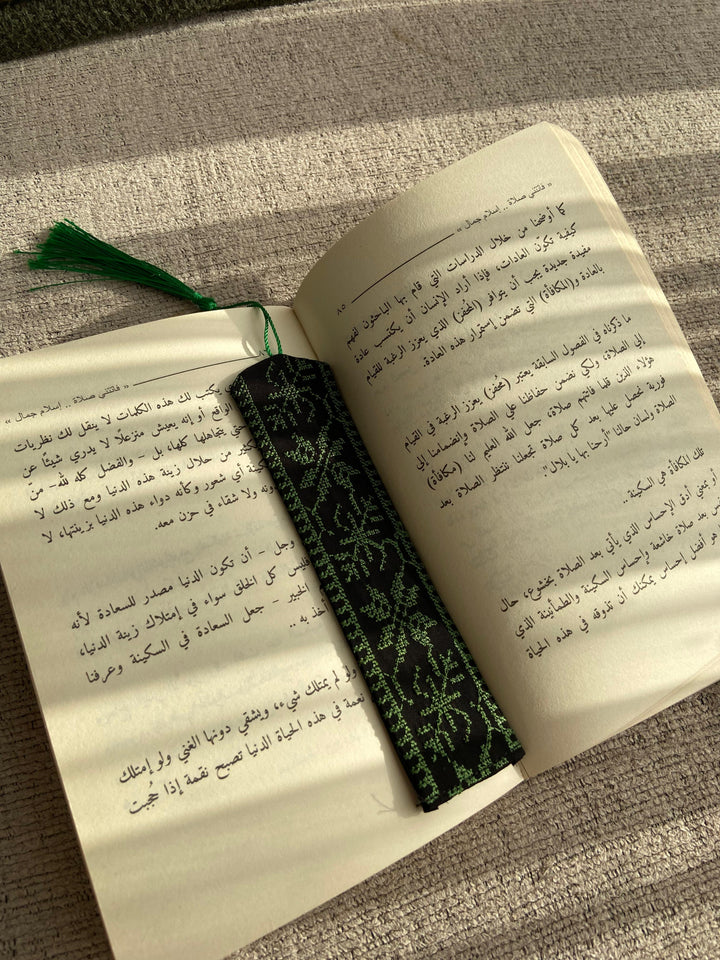 « فاتتني صلاة .. إسلام جمال »
٨٥
كما أوضحنا من خلال الدراسات التي قام بها الباحثون لفهم
كيفية تكوّن العادات، فإذا أراد الإنسان أن يكتسب عادة
مفيدة جديدة يجب أن يتوافر (المُحفز) الذي يعزز الرغبة للقيام
بالعادة و(المكافأة) التي تضمن إستمرار هذه العادة.
ما ذكرناه في الفصول السابقة يعتبر (مُحفز) يعزز الرغبة في القيام
إلى الصلاة، ولكي نضمن حفاظنا على الصلاة وإنضمامنا إلى
هؤلاء الذين قلما فاتتهم صلاة، جعل الله العليم لنا (مكافأة)
فورية نحصل عليها بعد كل صلاة تجعلنا ننتظر الصلاة بعد
الصلاة ولسان حالنا "أرحنا بها يا بلال".
تلك المكافأة هي السكينة..
أو بمعنى أدق الإحساس الذي يأتي بعد الصلاة بخشوع، حال
بعد صلاة خاشعة وإحساس السكينة والطمأنينة الذي
هو أفضل إحساس يمكنك أن تتذوقه في هذه الحياة
« فاتتني صلاة .. إسلام جمال »
يكتب لك هذه الكلمات لا ينقل لك نظريات
الواقع أو إنه يعيش منعزلًا لا يدري شيئًا عن
حتى يتجاهلها كلها، بل - والفضل كله لله - منّ
كبير من حلال زينة هذه الدنيا ومع ذلك لا
أي شعور وكأنه دواء هذه الدنيا بزينتها، لا
ولا شقاء في حزن معه.
وجل - أن تكون الدنيا مصدر للسعادة لأنه
فليس كل الخلق سواء في إمتلاك زينة الدنيا،
الخبير - جعل السعادة في السكينة وعرفنا
أخذ به.
ولو لم يمتلك شيء، ويشقي دونها الغني ولو إمتلك
نعمة في هذه الحياة الدنيا تصبح نقمة إذا حُجبت